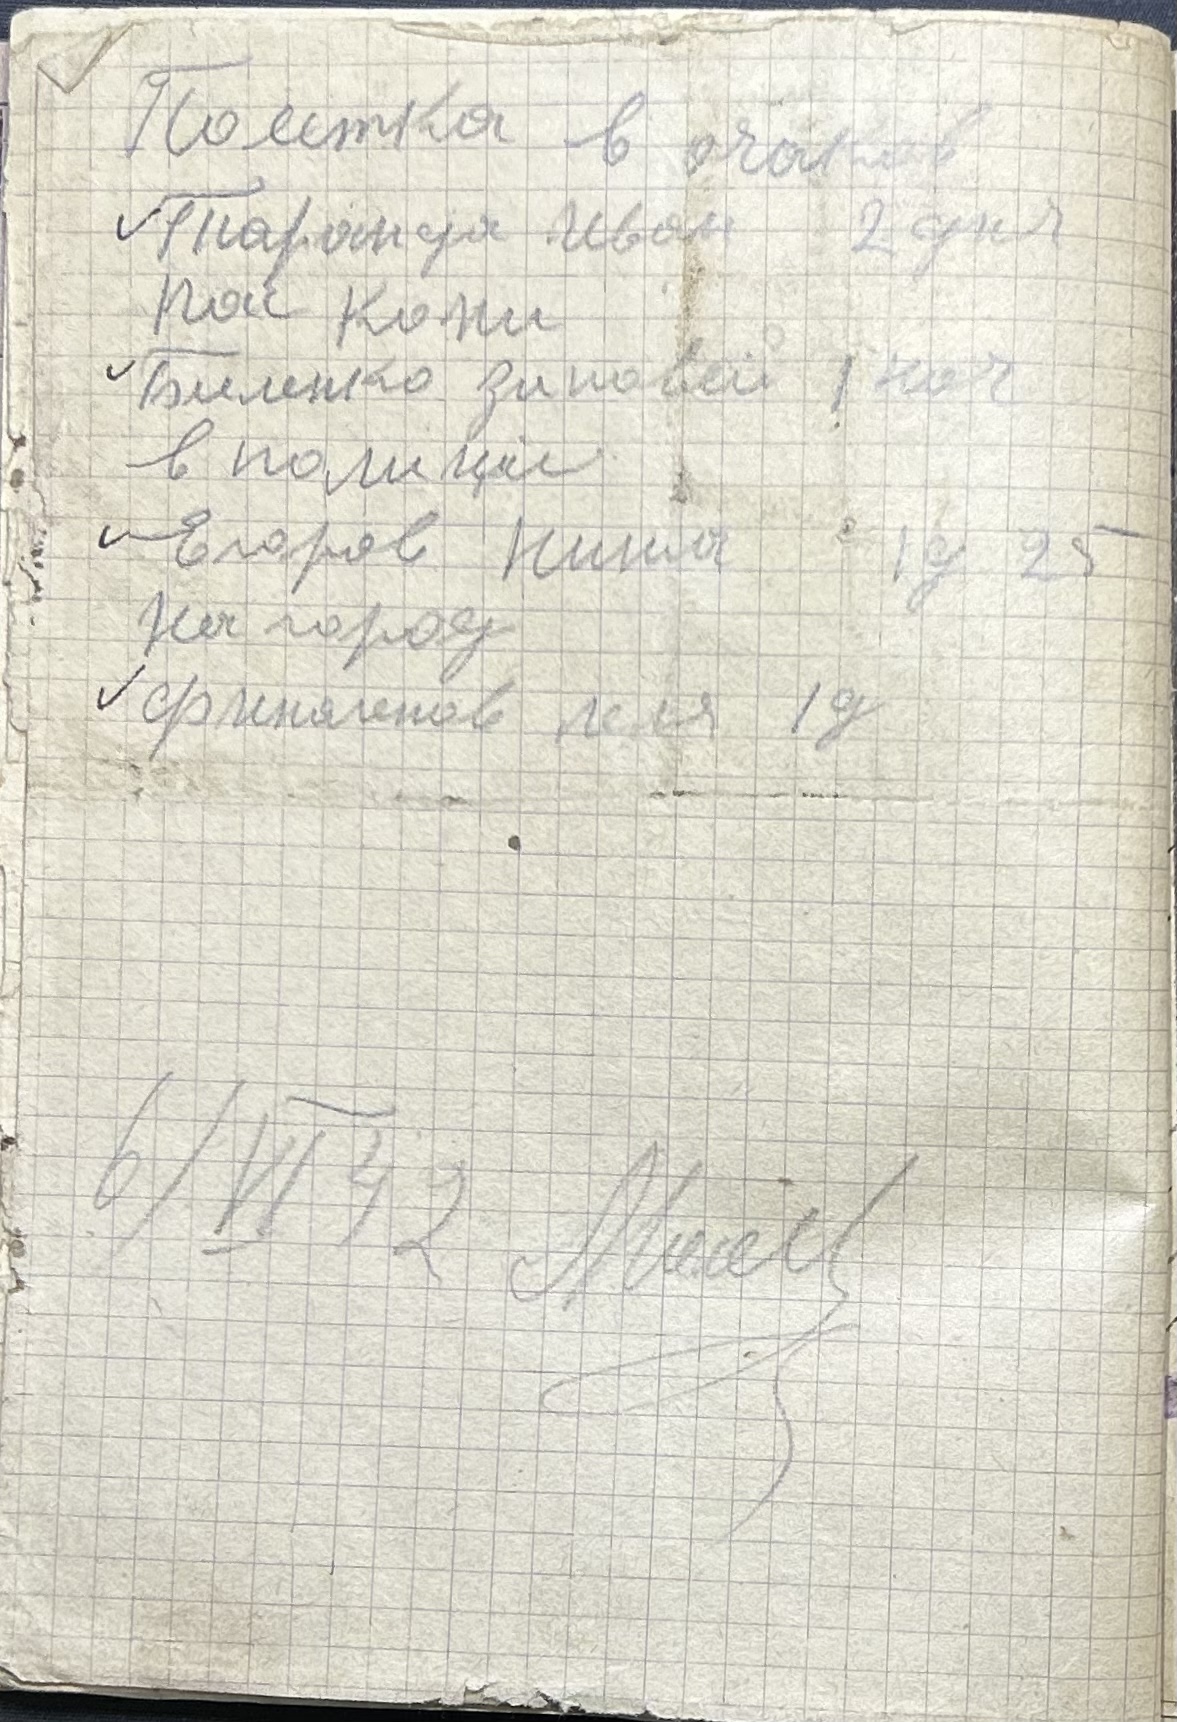 Поистка в очаков
Таранда Иван 2 дня
Пас Кони
Биленко зиновей 1 ноч
в полиціи
Егоров Нина 1д 25
На город
финагенов леля 1д
6/VI 42